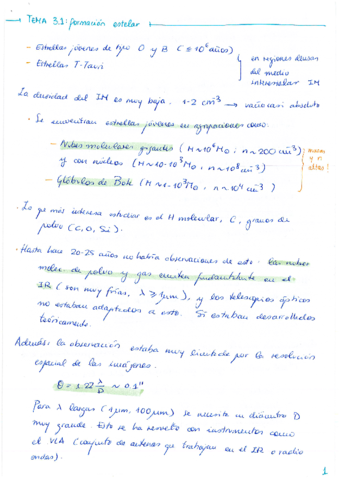 → TEMA 3.1: formación estelar
- Estrellas jóvenes de tipo O y B (≤10⁶ años)
- Estrellas T-Tauri
en regiones densas
del medio
interestelar IM
La densidad del IM es muy baja. 1-2 cm⁻³ → vacío casi absoluto
· Se encuentran estrellas jóvenes en agrupaciones como:
- Nubes moleculares gigantes (M~10⁶M⊙, n~200 cm⁻³)
y con núcleos (M~10·10³M⊙, n~10⁵ cm⁻³)
- Glóbulos de Bok (M~1-10³M⊙, n~10⁴ cm⁻³)
· Lo que más interesa estudiar es el H molecular, C, granos de
polvo (C, O, Si).
· Hasta hace 20-25 años no había observaciones de esto. Las nubes
molec. de polvo y gas emiten fundamentalmente en el
IR (son muy frías, λ≥1μm), y los telescopios ópticos
no estaban adaptados a esto. Sí estaban desarrollados
teóricamente.
Además: la observación estaba muy limitada por la resolución
espacial de las imágenes.
θ = 1.22 λ/D ~ 0.1"
Para λ largas (1μm, 100μm) se necesita un diámetro D
muy grande. Esto se ha resuelto con instrumentos como
el VLA (conjunto de antenas que trabajan en el IR o radio
ondas).
1